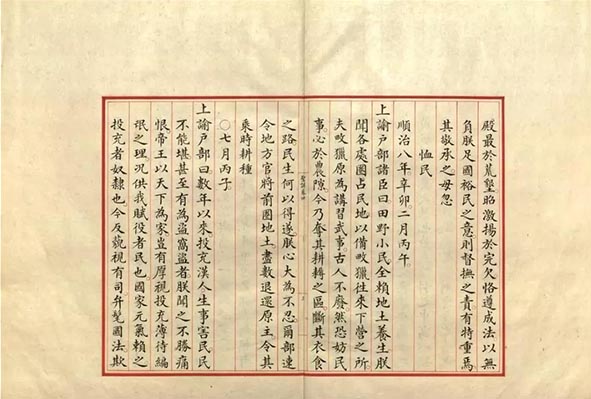 殿最於荒墾昭激揚於完欠恪遵成法以無
負朕足國裕民之意則督撫之責有特重焉
其敬承之毋忽
恤民
順治八年辛卯二月丙午
上諭戶部諸臣曰田野小民全賴地土養生朕
聞各處圈占民地以備畋獵往來下營之所
夫畋獵原為講習武事古人不廢然恐妨民
事必於農隙今乃奪其耕耨之區斷其衣食
之路民生何以得遂朕心大為不忍爾部速
令地方官將前圈地土盡數退還原主令其
乘時耕種
○七月丙子
上諭戶部曰數年以來投充漢人生事害民民
不能堪甚至有為盜窩盜者朕聞之不勝痛
恨帝王以天下為家豈有厚視投充薄待編
氓之理况供我賦役者民也國家元氣賴之
投充者奴隸也今反藐視有司弁髦國法欺